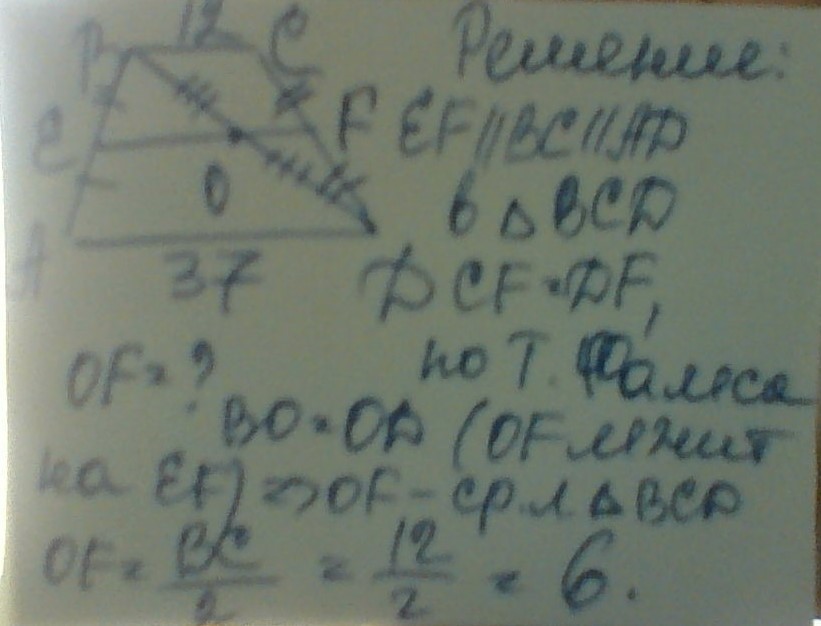 12
B C Решение:
E F EF||BC||AD
O в △ BCD
A 37 D CF = DF,
OF = ? по Т. Фалеса
BO = OD (OF лежит
на EF) => OF - ср.л △ BCD
OF = BC/2 = 12/2 = 6.